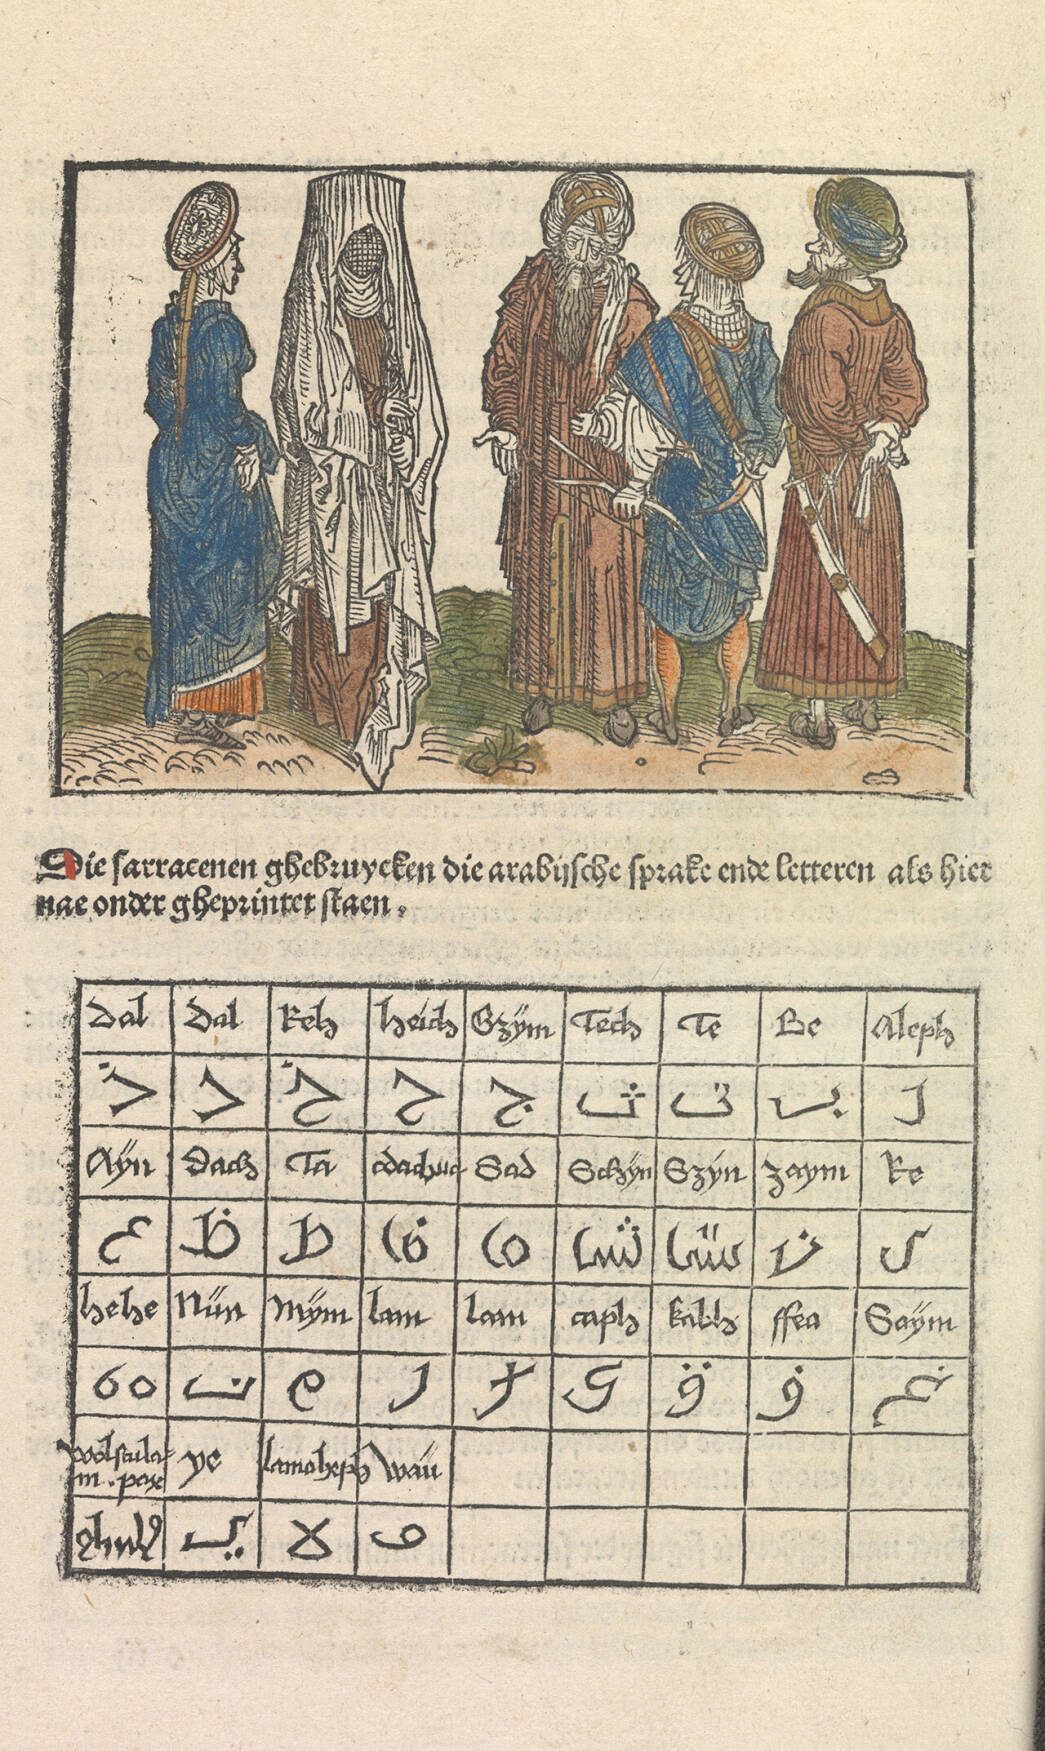 Die sarracenen ghebruycken die arabijsche sprake ende letteren als hier
nae onder gheprintet staen.
Dal Dal Keh heich Gzÿm Tech Te Be Aleph
ذ د خ ح ج ث ت ب ا
Aÿn Dach Ta Sad Schÿn Szÿn zaym Re
ع ظ ط ض ص ش س ز ر
hehe Nün Mÿm lam lam caph kabh ffea Saÿm
ه ن م ل ك ق ف غ
ye lamoheph wäu
ي لا و